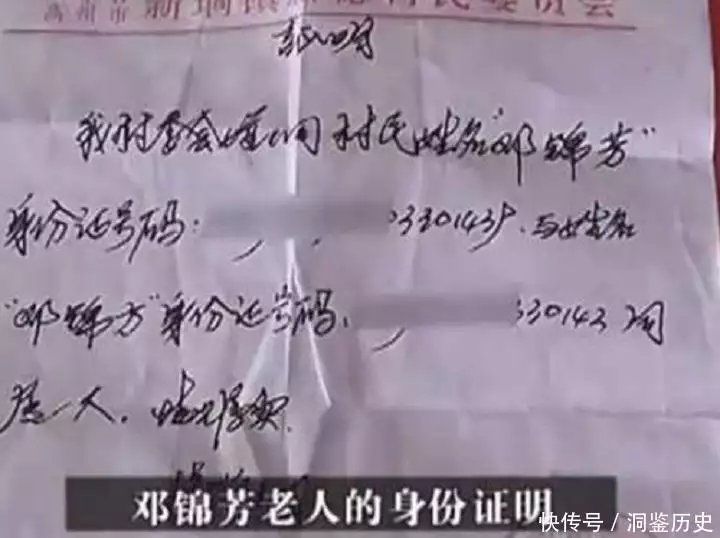 州市新垌镇 村民委员会
证明
我村委会 村民姓名"邓锦芳"
身份证号码: 330143 与姓名
"邓锦方"身份证号码: 330142 同
一人, 情况属实.
邓锦芳老人的身份证明
快传号 / 洞鉴历史